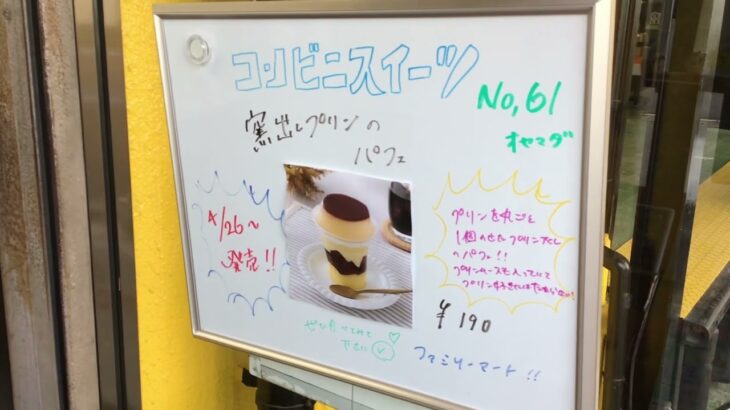 コンビニスイーツ
No,61
オヤマダ
窯出しプリンの
パフェ
4/26〜
発売!!
プリンを丸ごと
1個のせたプリンづくし
のパフェ!!
プリンムースも入っていて
プリン好きにはたまらない!
¥190
ぜひ食べてみて
下さい
ファミリーマート!!